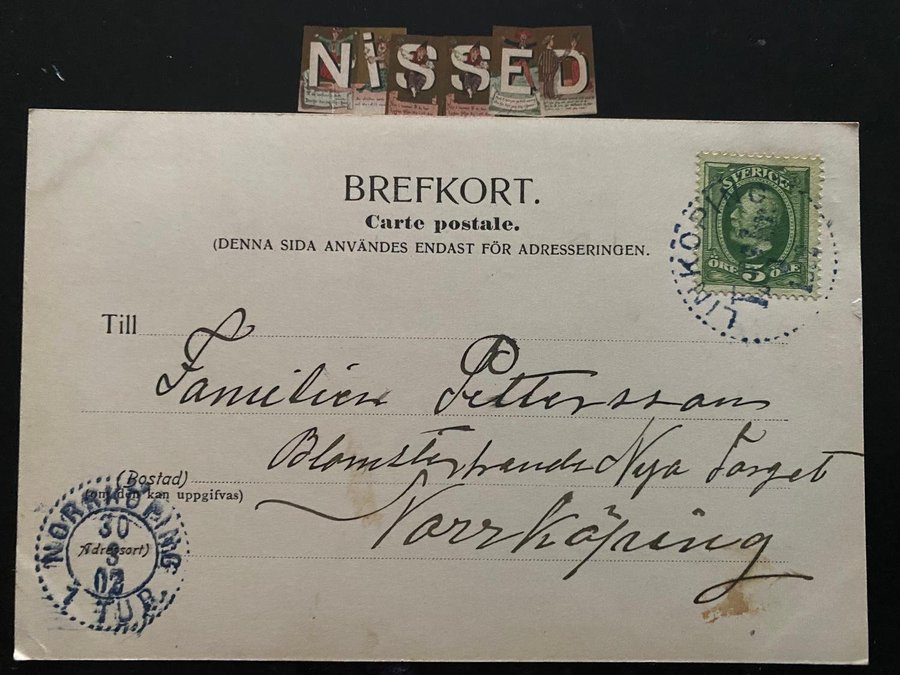 NISSED
BREFKORT.
Carte postale.
(DENNA SIDA ANVÄNDES ENDAST FÖR ADRESSERINGEN.
SVERIGE
ÖRE 5 ÖRE
LINKÖPING
Till
Familien Pettersson
Blomsterhandl Nya Torget
(Bostad)
(om den kan uppgifvas)
Norrköping
Adressort)
NORRKÖPING
30
8
02
1 TUR.